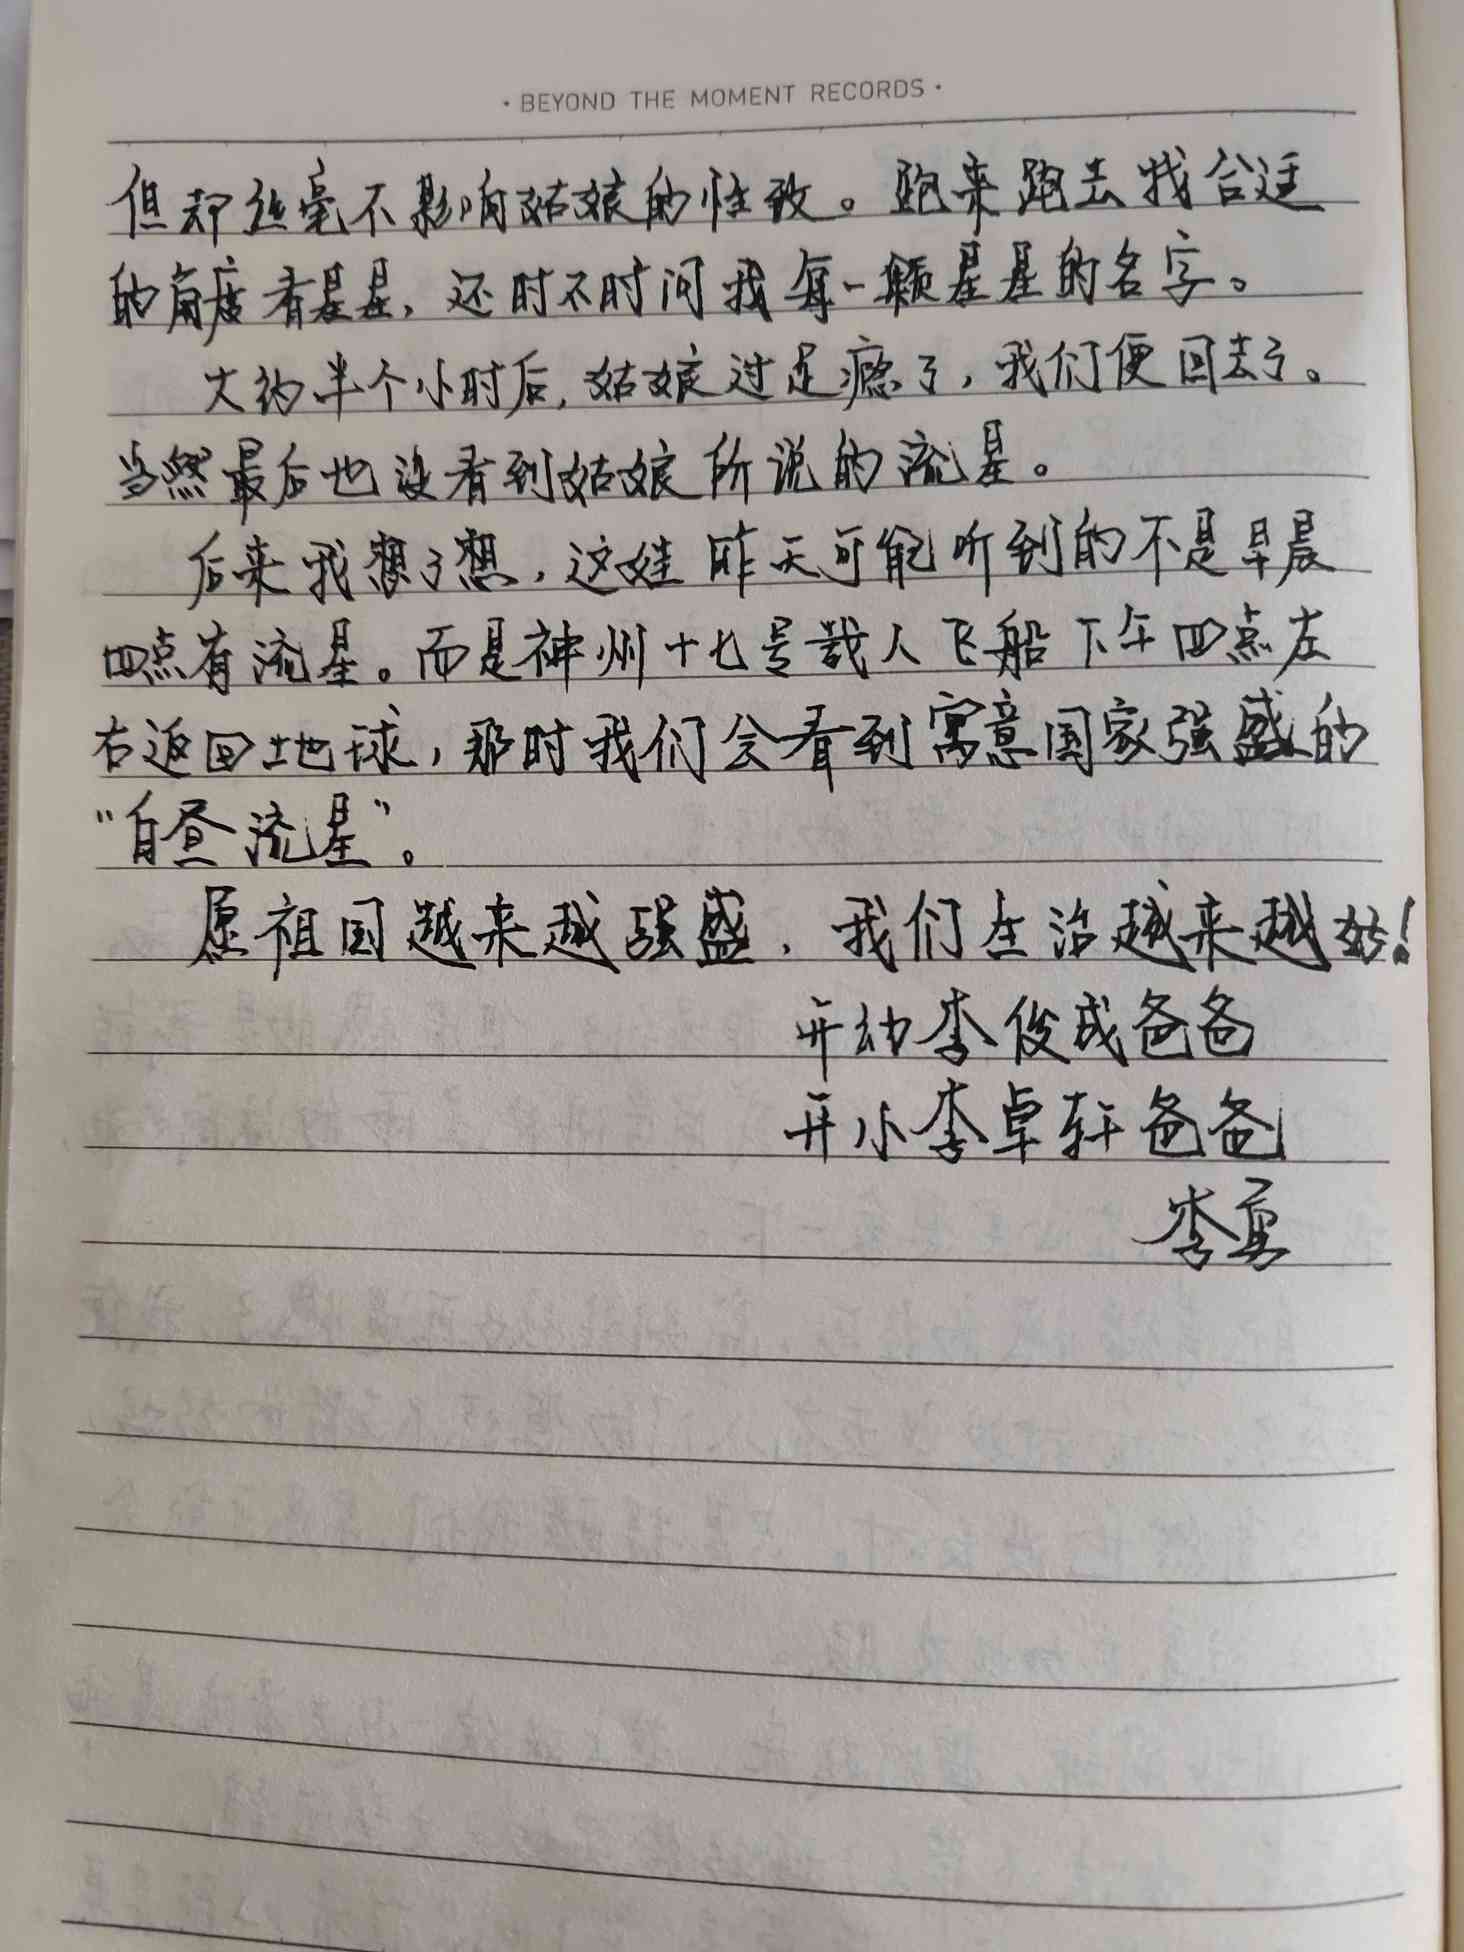 · BEYOND THE MOMENT RECORDS ·
但却丝毫不影响姑娘的性致。跑来跑去找合适
的角度看星星，还时不时问我每一颗星星的名字。
大约半个小时后，姑娘过足瘾了，我们便回去了。
当然最后也没看到姑娘所说的流星。
后来我想了想，这娃昨天可能听到的不是早晨
四点有流星。而是神州十七号载人飞船下午四点左
右返回地球，那时我们会看到寓意国家强盛的
“白昼流星”。
愿祖国越来越强盛，我们生活越来越好！
开幼李俊成爸爸
开小李卓轩爸爸
李勇